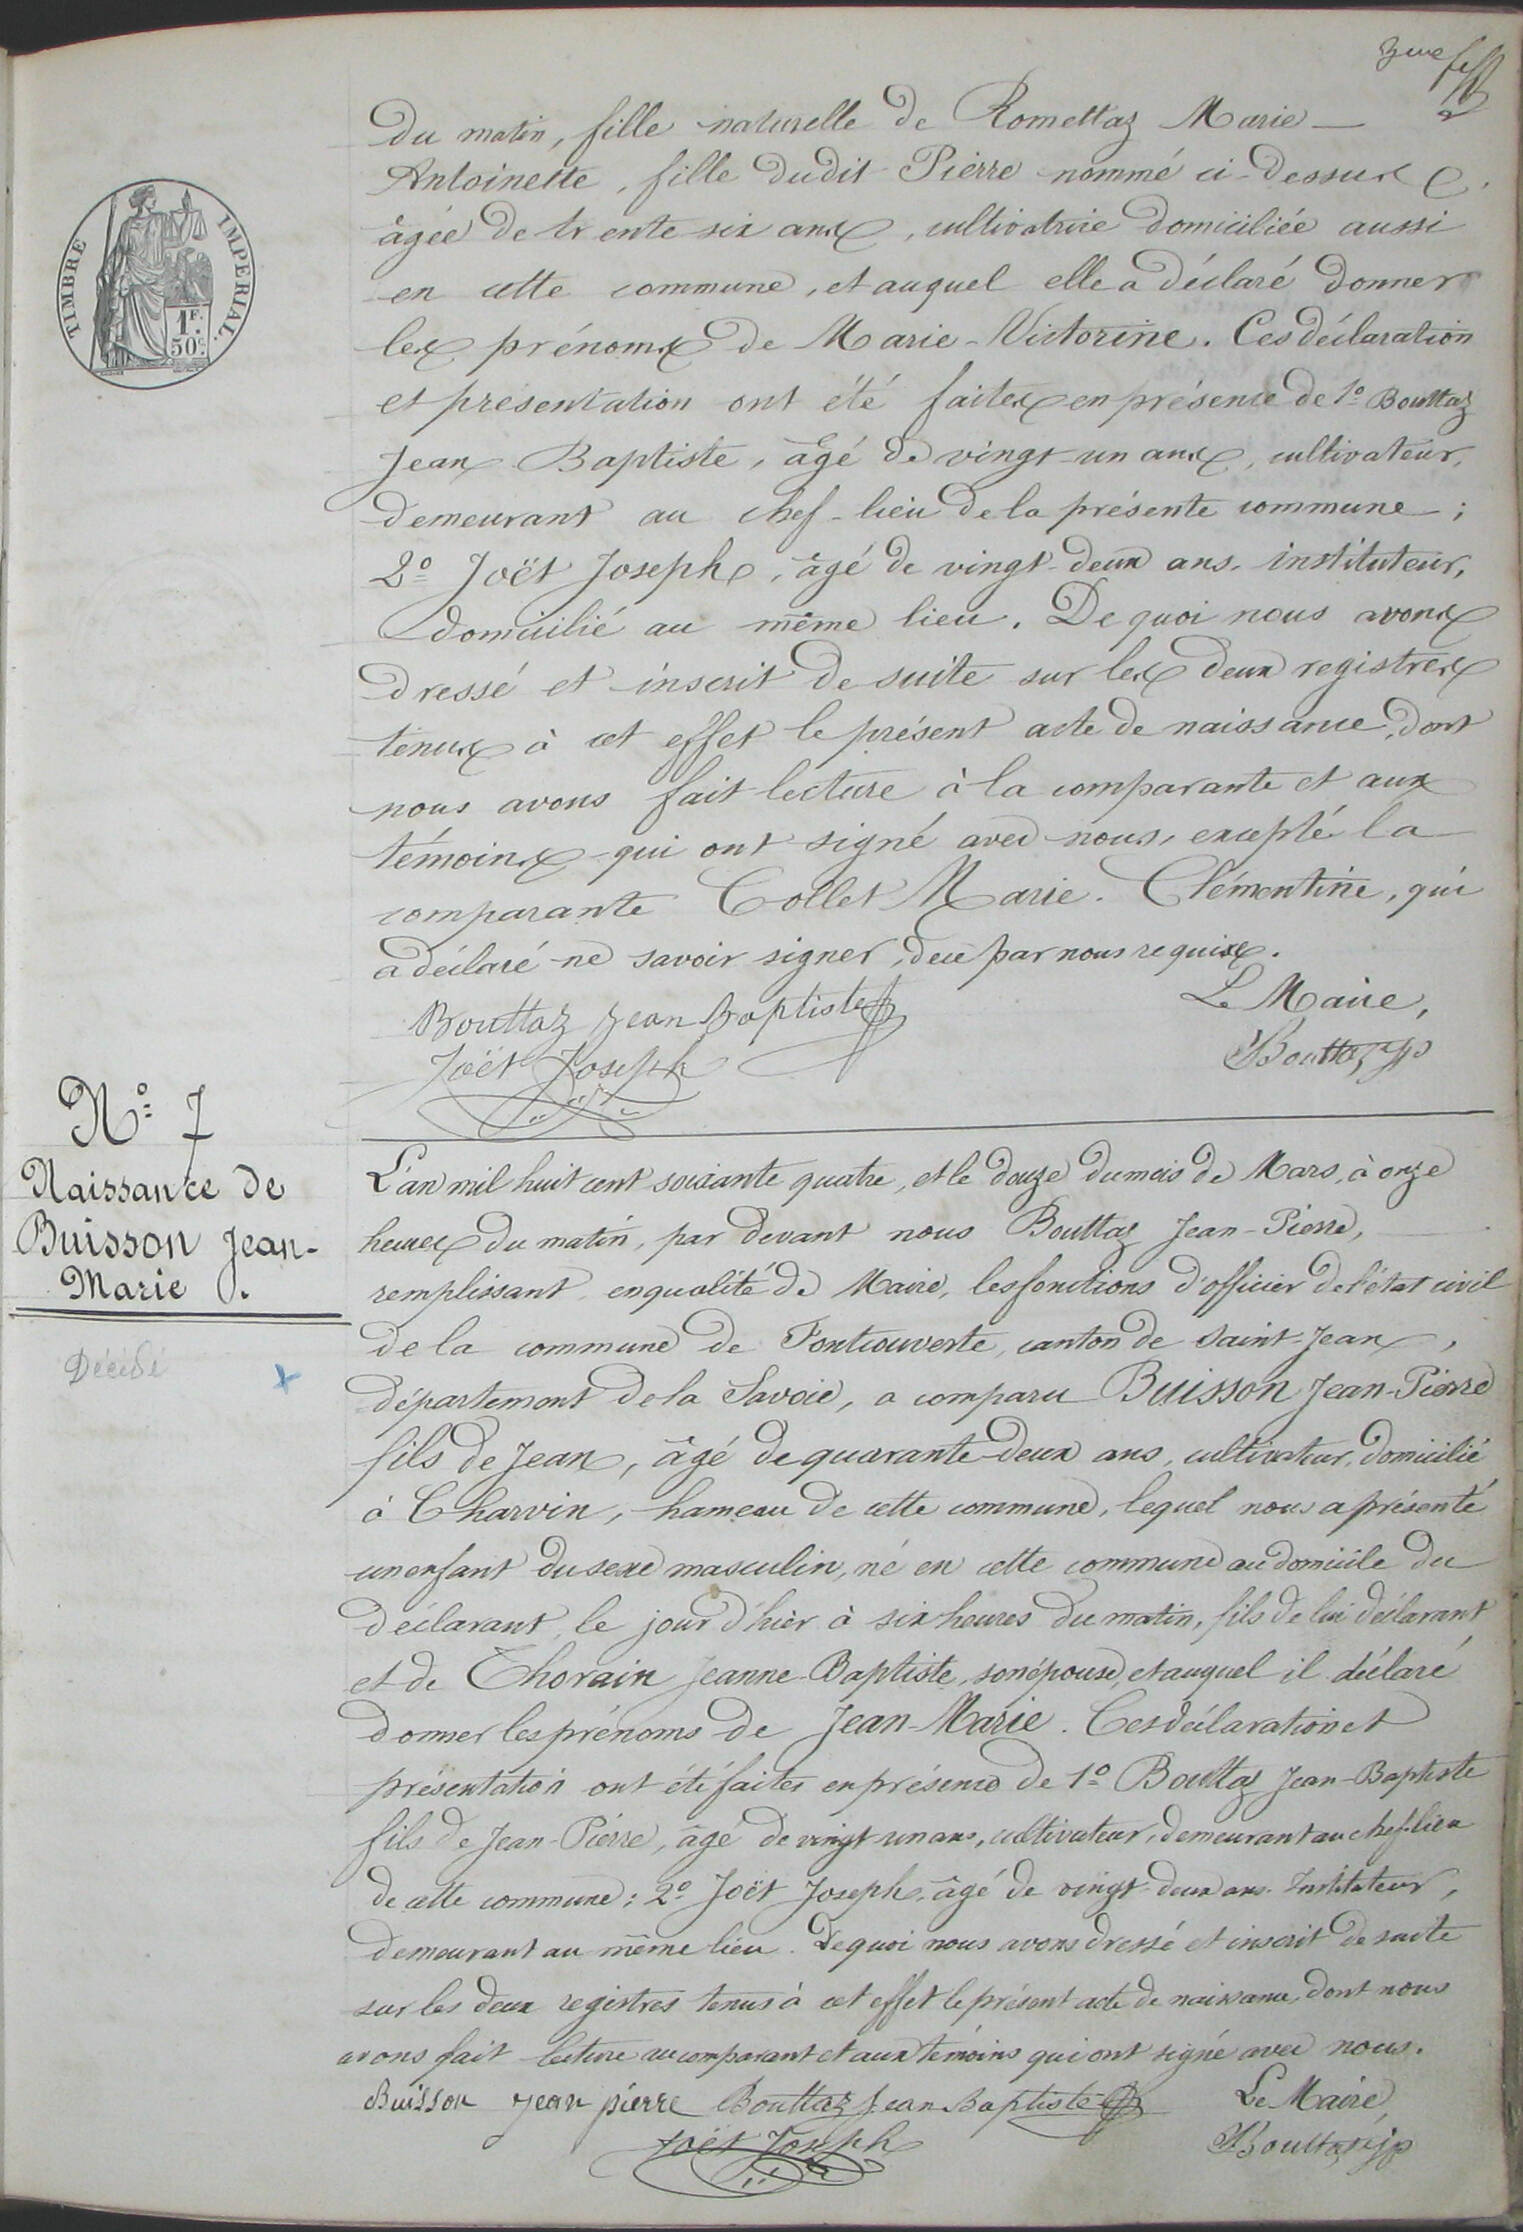 3me
du matin, fille naturelle de Romettaz Marie-
Antoinette, fille dudit Pierre nommé ci-dessus,
âgée de trente six ans, cultivatrice domiciliée aussi
en cette commune, et auquel elle a déclaré donner
les prénoms de Marie-Victorine. Ces déclaration
et présentation ont été faites en présence de 1º Bouttaz
Jean Baptiste, âgé de vingt-un ans, cultivateur,
demeurant au chef-lieu de la présente commune;
2º Joët Joseph, âgé de vingt-deux ans, instituteur,
domicilié au même lieu. De quoi nous avons
dressé et inscrit de suite sur les deux registres
tenus à cet effet le présent acte de naissance, dont
nous avons fait lecture à la comparante et aux
témoins qui ont signé avec nous, excepté la
comparante Collet Marie-Clémentine, qui
a déclaré ne savoir signer, de ce par nous requise.
Bouttaz Jean Baptiste
Le Maire,
Joët Joseph
Bouttaz jp
TIMBRE IMPERIAL.
1F.
50c.
Nº 7
Naissance de
Buisson Jean-
Marie.
Décédé
L'an mil huit cent soixante quatre, et le douze du mois de Mars, à onze
heures du matin, par devant nous Bouttaz Jean-Pierre,
remplissant en qualité de Maire, les fonctions d'officier de l'état civil
de la commune de Fontcouverte, canton de Saint-Jean,
département de la Savoie, a comparu Buisson Jean-Pierre
fils de Jean, âgé de quarante-deux ans, cultivateur, domicilié
à Charvin, hameau de cette commune, lequel nous a présenté
un enfant du sexe masculin, né en cette commune au domicile du
déclarant, le jour d'hier à six heures du matin, fils de lui déclarant
et de Thorain Jeanne-Baptiste, son épouse, et auquel il déclaré
donner les prénoms de Jean-Marie. Ces déclaration et
présentation ont été faites en présence de 1º Bouttaz Jean-Baptiste
fils de Jean-Pierre, âgé de vingt-un ans, cultivateur, demeurant au chef-lieu
de cette commune; 2º Joët Joseph, âgé de vingt-deux ans. Instituteur,
demeurant au même lieu. De quoi nous avons dressé et inscrit de suite
sur les deux registres tenus à cet effet le présent acte de naissance, dont nous
avons fait lecture au comparant et aux témoins qui ont signé avec nous.
Buisson jean pierre Bouttaz Jean Baptiste Le Maire
Joët Joseph Bouttaz jp